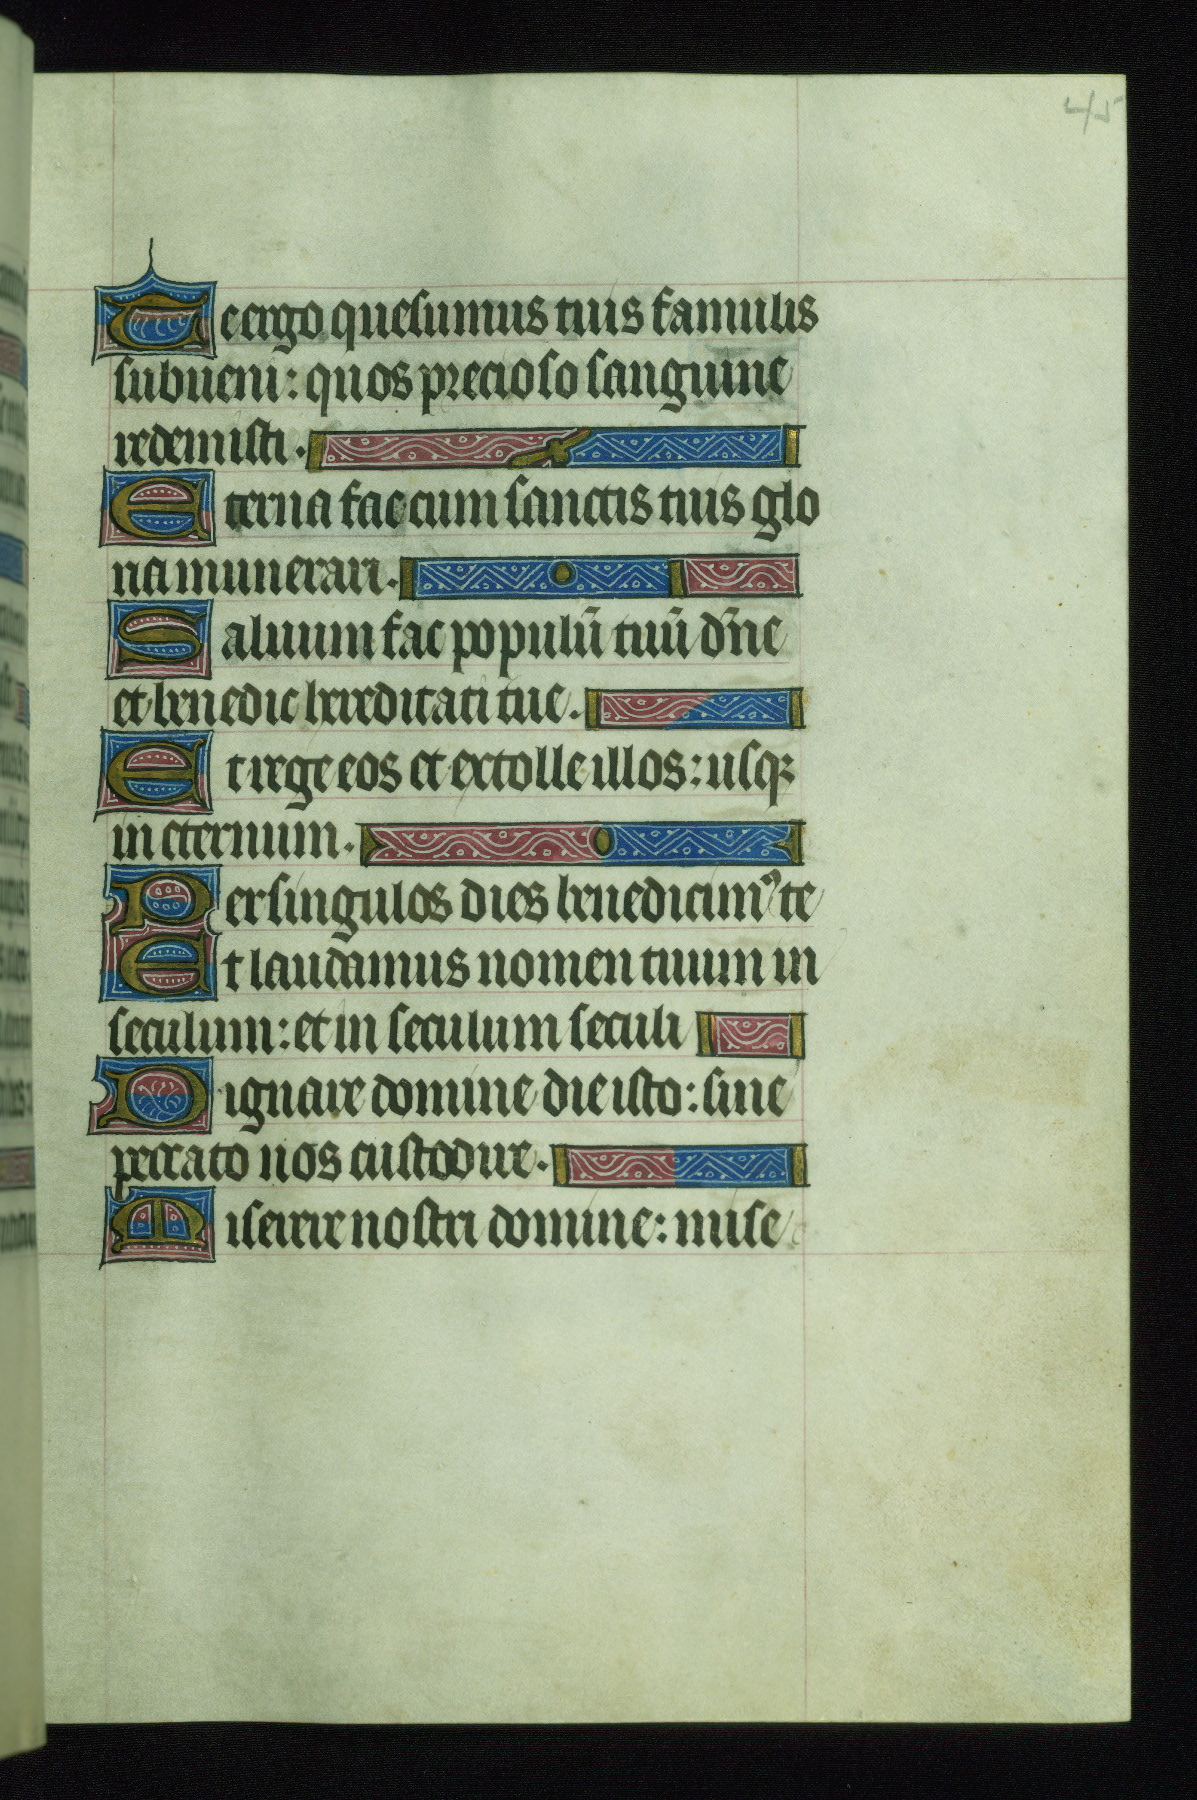 45
Te ergo quesumus tuis famulis
subueni: quos precioso sanguine
redemisti.
Eterna fac cum sanctis tuis glo
ria munerari.
Saluum fac populū tuū dn̄e
et benedic hereditati tue.
Et rege eos et extolle illos: usqꝫ
in eternum.
Per singulos dies benedicimꝰ te
Et laudamus nomen tuum in
seculum: et in seculum seculi
Dignare domine die isto: sine
peccato nos custodire.
Miserere nostri domine: mise